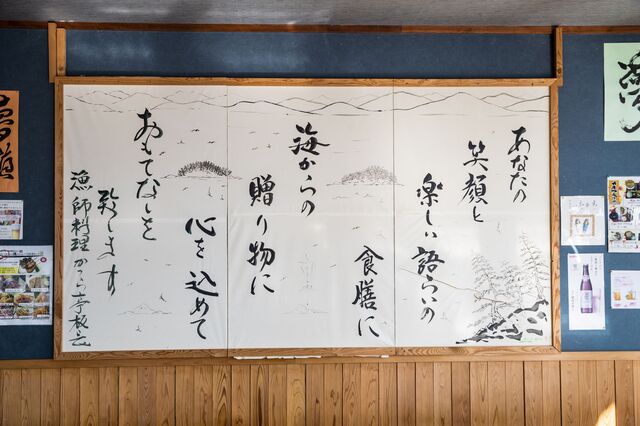 あなたの
笑顔と
楽しい語らいの
食膳に
海からの
贈り物に
心を込めて
おもてなしを
致します
漁師料理かこら亭